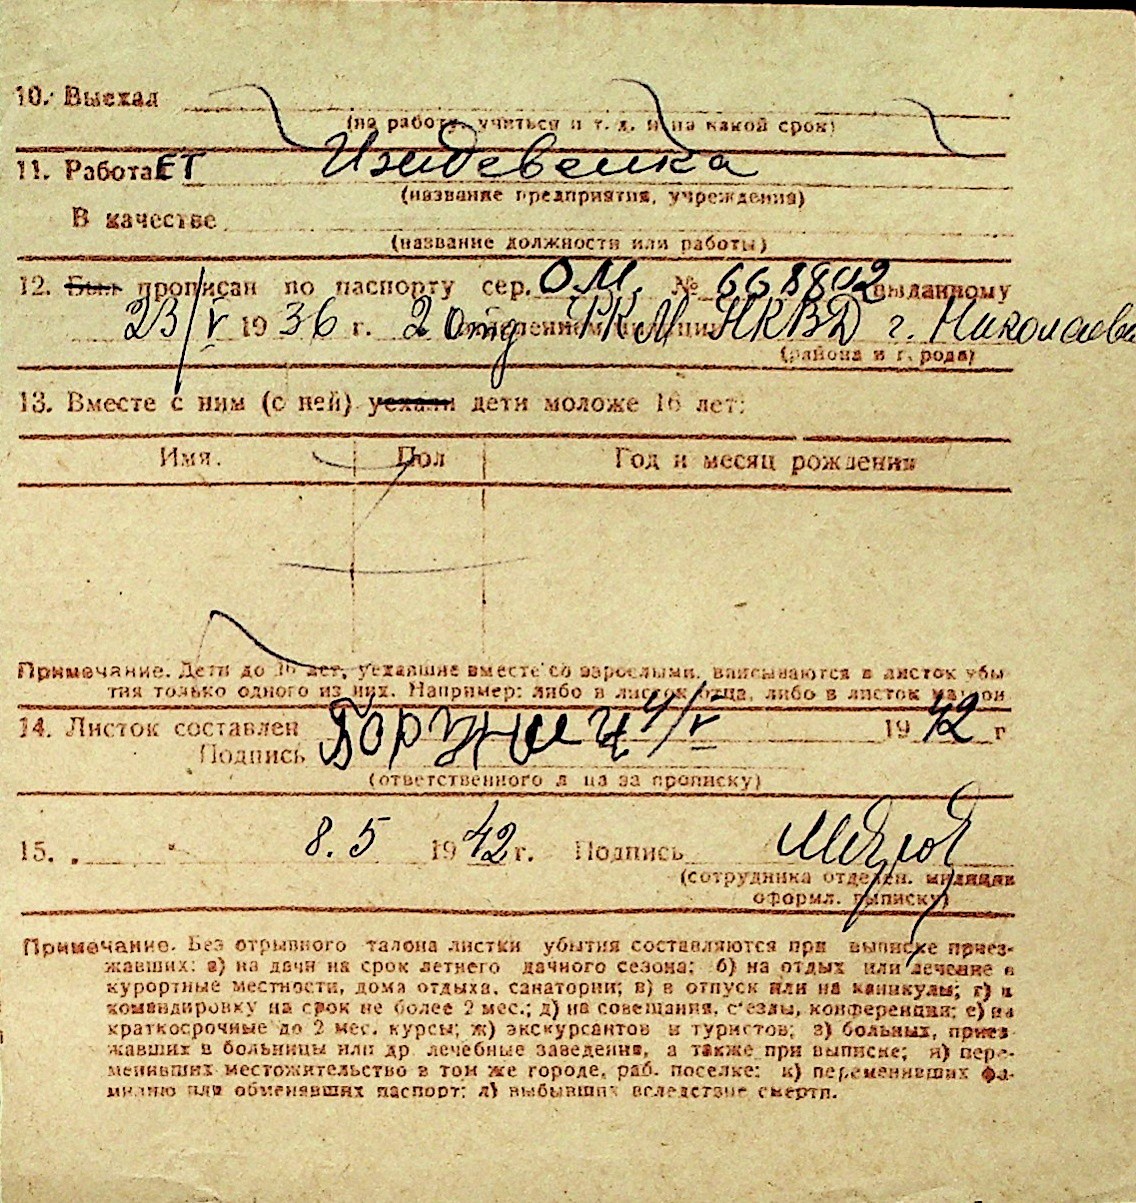 10. Выехал
(на работу, учиться и т. д. и на какой срок)
11. РаботаЕТ Иждевенка
(название предприятия, учреждения)
В качестве
(название должности или работы)
12. Был прописан по паспорту сер. ОМ. № 668802 выданному
23/V 1936 г. 2 отд РКМ НКВД г. Николаева
(района и города)
13. Вместе с ним (с ней) уехали дети моложе 16 лет:
Имя. Пол Год и месяц рождения
Примечание. Дети до 16 лет, уехавшие вместе со взрослыми, вписываются в листок убы-
тия только одного из них. Например: либо в листок отца, либо в листок матери
14. Листок составлен 4/V 1942 г
Подпись
(ответственного лица за прописку)
15. „ " 8.5 1942 г. Подпись
(сотрудника отделен. милиции
оформл. выписку)
Примечание. Без отрывного талона листки убытия составляются при выписке приез-
жавших: а) на дачи на срок летнего дачного сезона; б) на отдых или лечение в
курортные местности, дома отдыха, санатории; в) в отпуск или на каникулы; г) в
командировку на срок не более 2 мес.; д) на совещания, с'езды, конференции; е) на
краткосрочные до 2 мес. курсы; ж) экскурсантов и туристов; з) больных, приез-
жавших в больницы или др. лечебные заведения, а также при выписке; и) пере-
менивших местожительство в том же городе, раб. поселке; к) переменивших фа-
милию или обменявших паспорт; л) выбывших вследствие смерти.